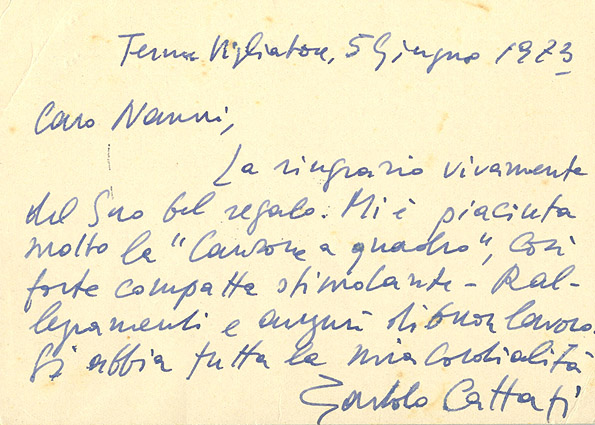 Terme Vigliatore, 5 Giugno 1973
Caro Nanni,
La ringrazio vivamente
del Suo bel regalo. Mi è piaciuta
molto la "Canzone a quadro", così
forte compatta stimolante - Ral-
legramenti e auguri di buon lavoro.
Si abbia tutta la mia cordialità
Bartolo Cattafi